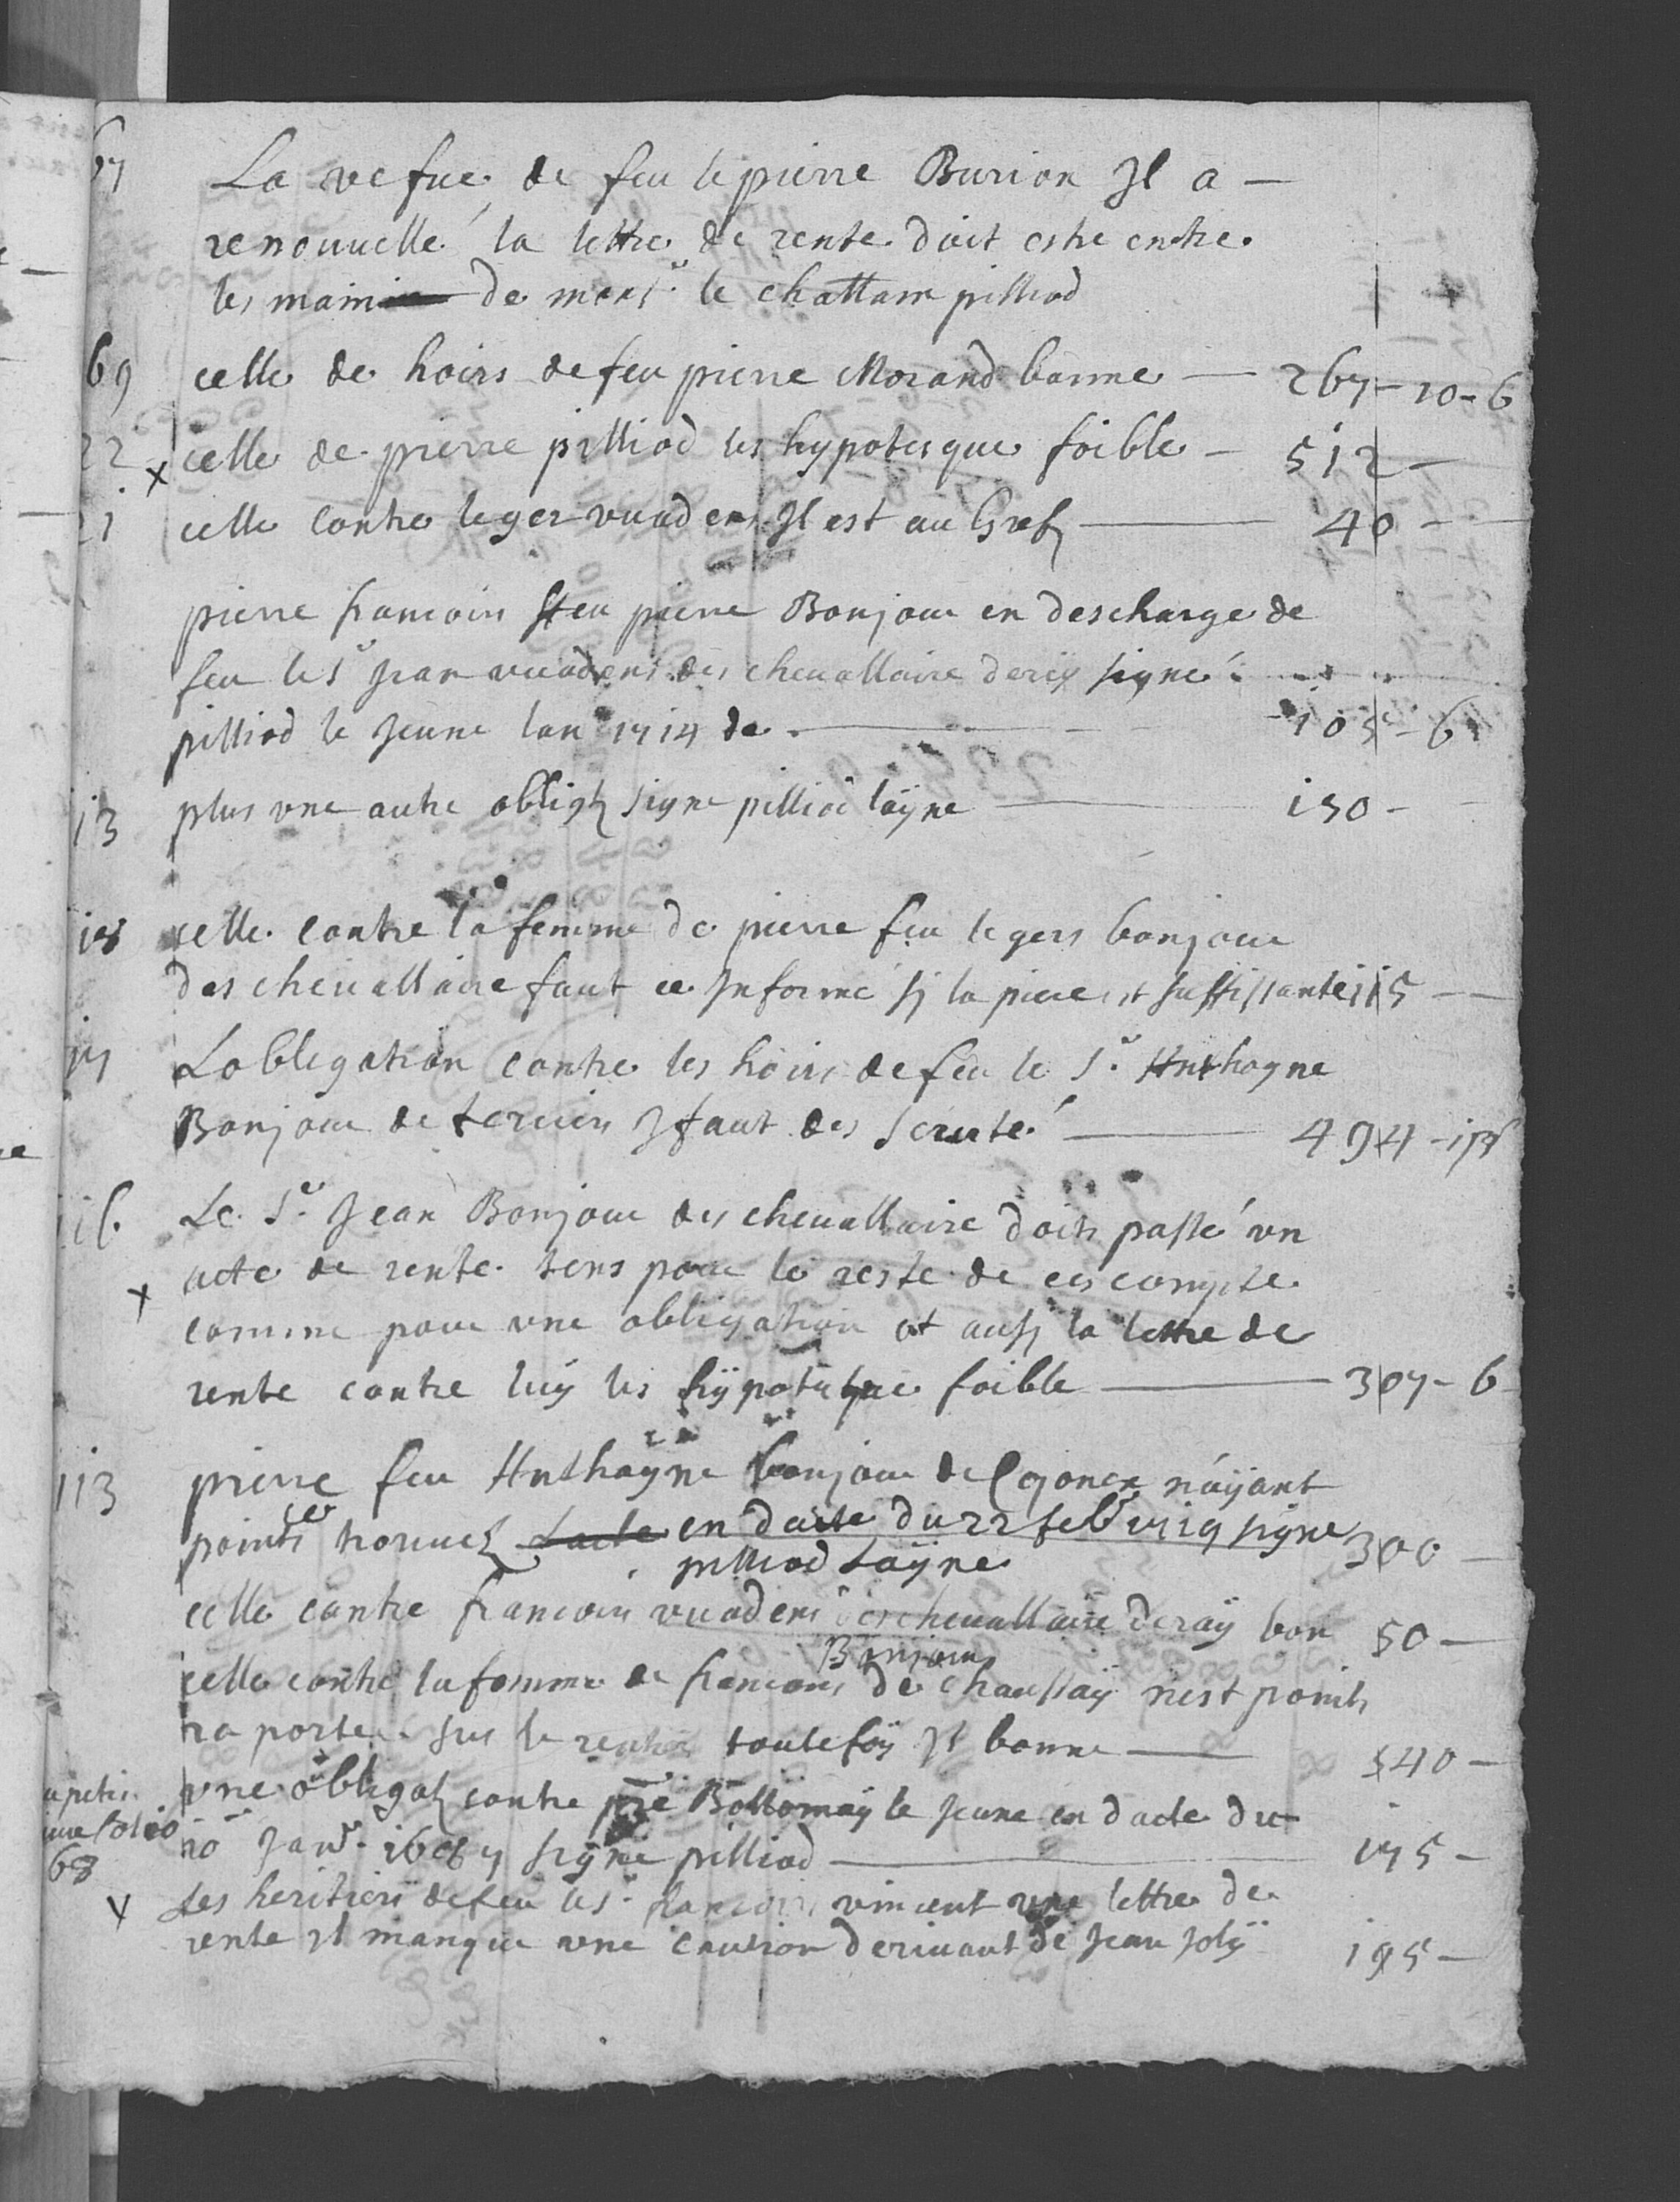 67 La vefue de feu le pierre Burion Jl a —
renouuellé la lettre de rente doit estre entre
les main de monsr le chattain pilliod
69 celle de hoirs de feu pierre Morand bonne — 267 - 10 - 6
22 x celle de pierre pilliod les hypotesque foible — 512 —
21 celle contre leger vuadens Jl est au Gref — 40 —
pierre francois feu pierre Bonjour en descharge de
feu le sr Jean vuadens des cheuallaire deriÿ signé
pilliod le Jeune lan 1714 de — 105 - 6
13 plus vne autre obligã signe pilliod laÿne — 150 -
18 celle contre la femme de pierre feu legers bonjour
des cheuallaire faut ce Jnformé sy la piece est suffissante 115 —
17 Lobligation contre les hoirs de feu le Sr Anthoyne
Bonjour de teruein Jl faut des seruté — 494 -
116 Le Sr Jean Bonjour des cheuallaire doits passé vn
x acte de rente tens pour le reste de ces compte
comme pour vne obligation et aussy la lettre de
rente contre luÿ les hÿpotesque foible — 307 - 6
113 pierre feu Anthoÿne bonjour de Cojonex n'aÿant
points trouuez en datte du 22 febr 1719 signe 300 —
pilliod Laÿne
celle contre francois vuadens des cheuallaire deraÿ bon 50 —
Bonjour
celle contre la femme de francois de chaussaÿ n'est points
raporte sus le rentier toutefoÿ Jl bonne — 540 —
vne obligaõ contre pre Bottomaÿ le Jeune en dacte du
folio 10 Janvr 1687 signe pilliod — 175 —
68
x Les heritiers de feu le sr francois vincent vne lettre de
rente Jl manque vne caution deriuant de Jean Jolÿ 195 —